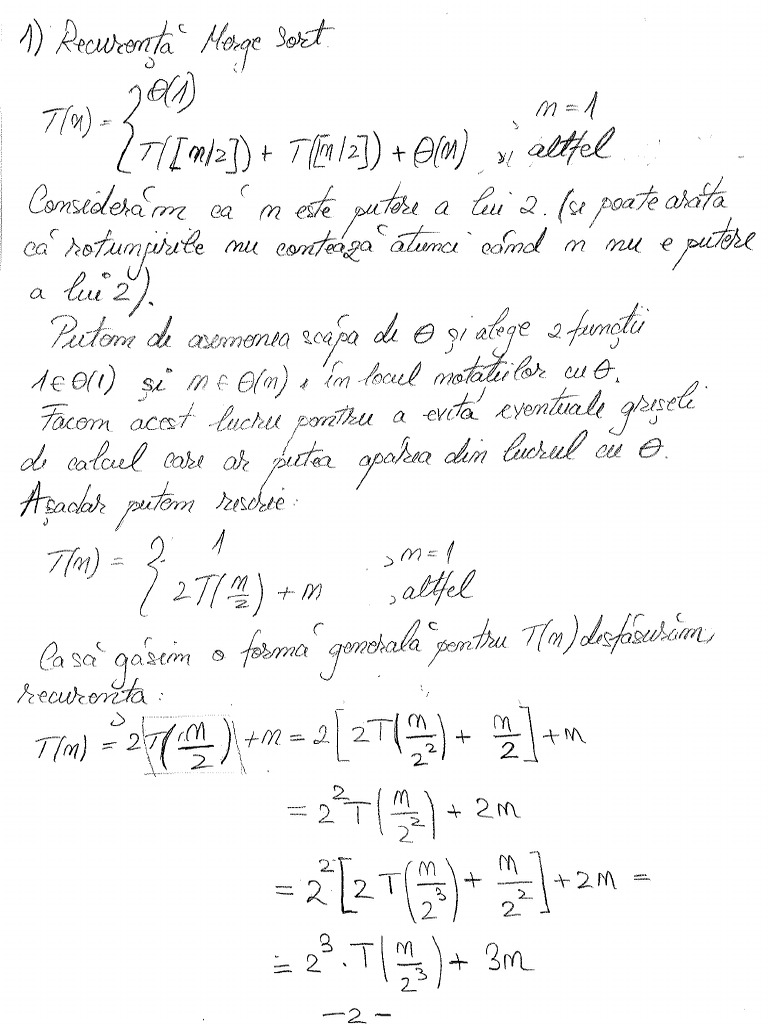 1) Recurență Merge Sort
T(n) = { Θ(1) , n = 1
T([n/2]) + T([n/2]) + Θ(n) , altfel
Considerăm că n este putere a lui 2. (se poate arăta
că rotunjirile nu contează atunci când n nu e putere
a lui 2).
Putem de asemenea scăpa de Θ și alege 2 funcții
1 ∈ Θ(1) și n ∈ Θ(n), în locul notațiilor cu Θ.
Facem acest lucru pentru a evita eventuale greșeli
de calcul care ar putea apărea din lucrul cu Θ.
Așadar putem rescrie:
T(n) = { 1 , n = 1
2T(n/2) + n , altfel
Ca să găsim o formă generală pentru T(n) desfășurăm
recurența:
T(n) = 2T(n/2) + n = 2[2T(n/2²) + n/2] + n
= 2²T(n/2²) + 2n
= 2²[2T(n/2³) + n/2²] + 2n =
= 2³ · T(n/2³) + 3n
-2-